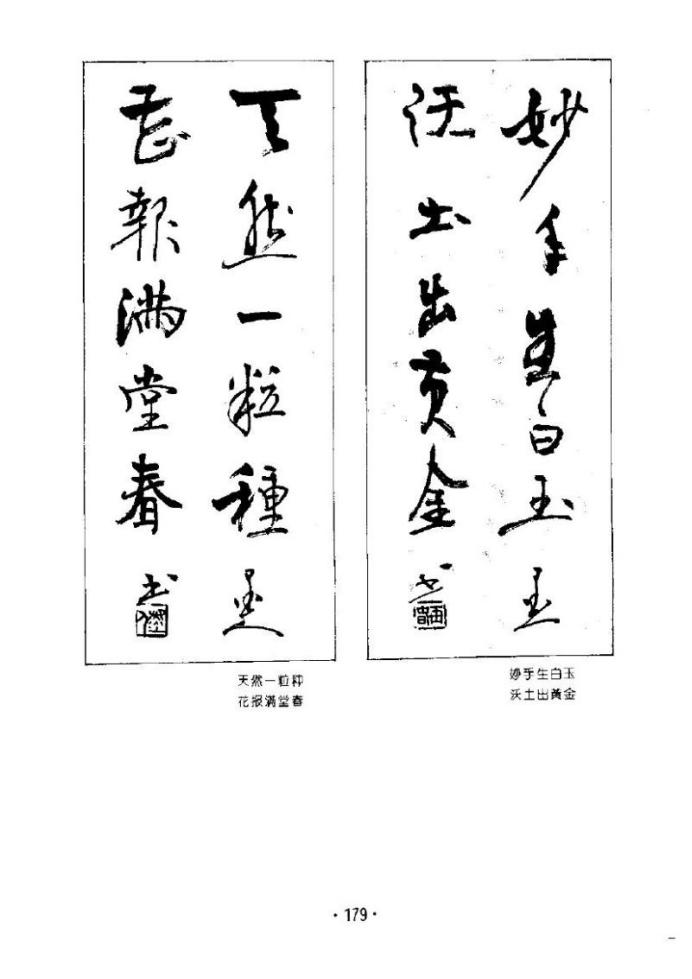 妙手生白玉
沃土出黄金
妙手生白玉
沃土出黄金
天然一粒種
花報满堂春
天然一粒种
花报满堂春
·179·